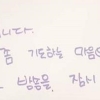 니다.
좀 기도하는 마음으
방송을 잠시